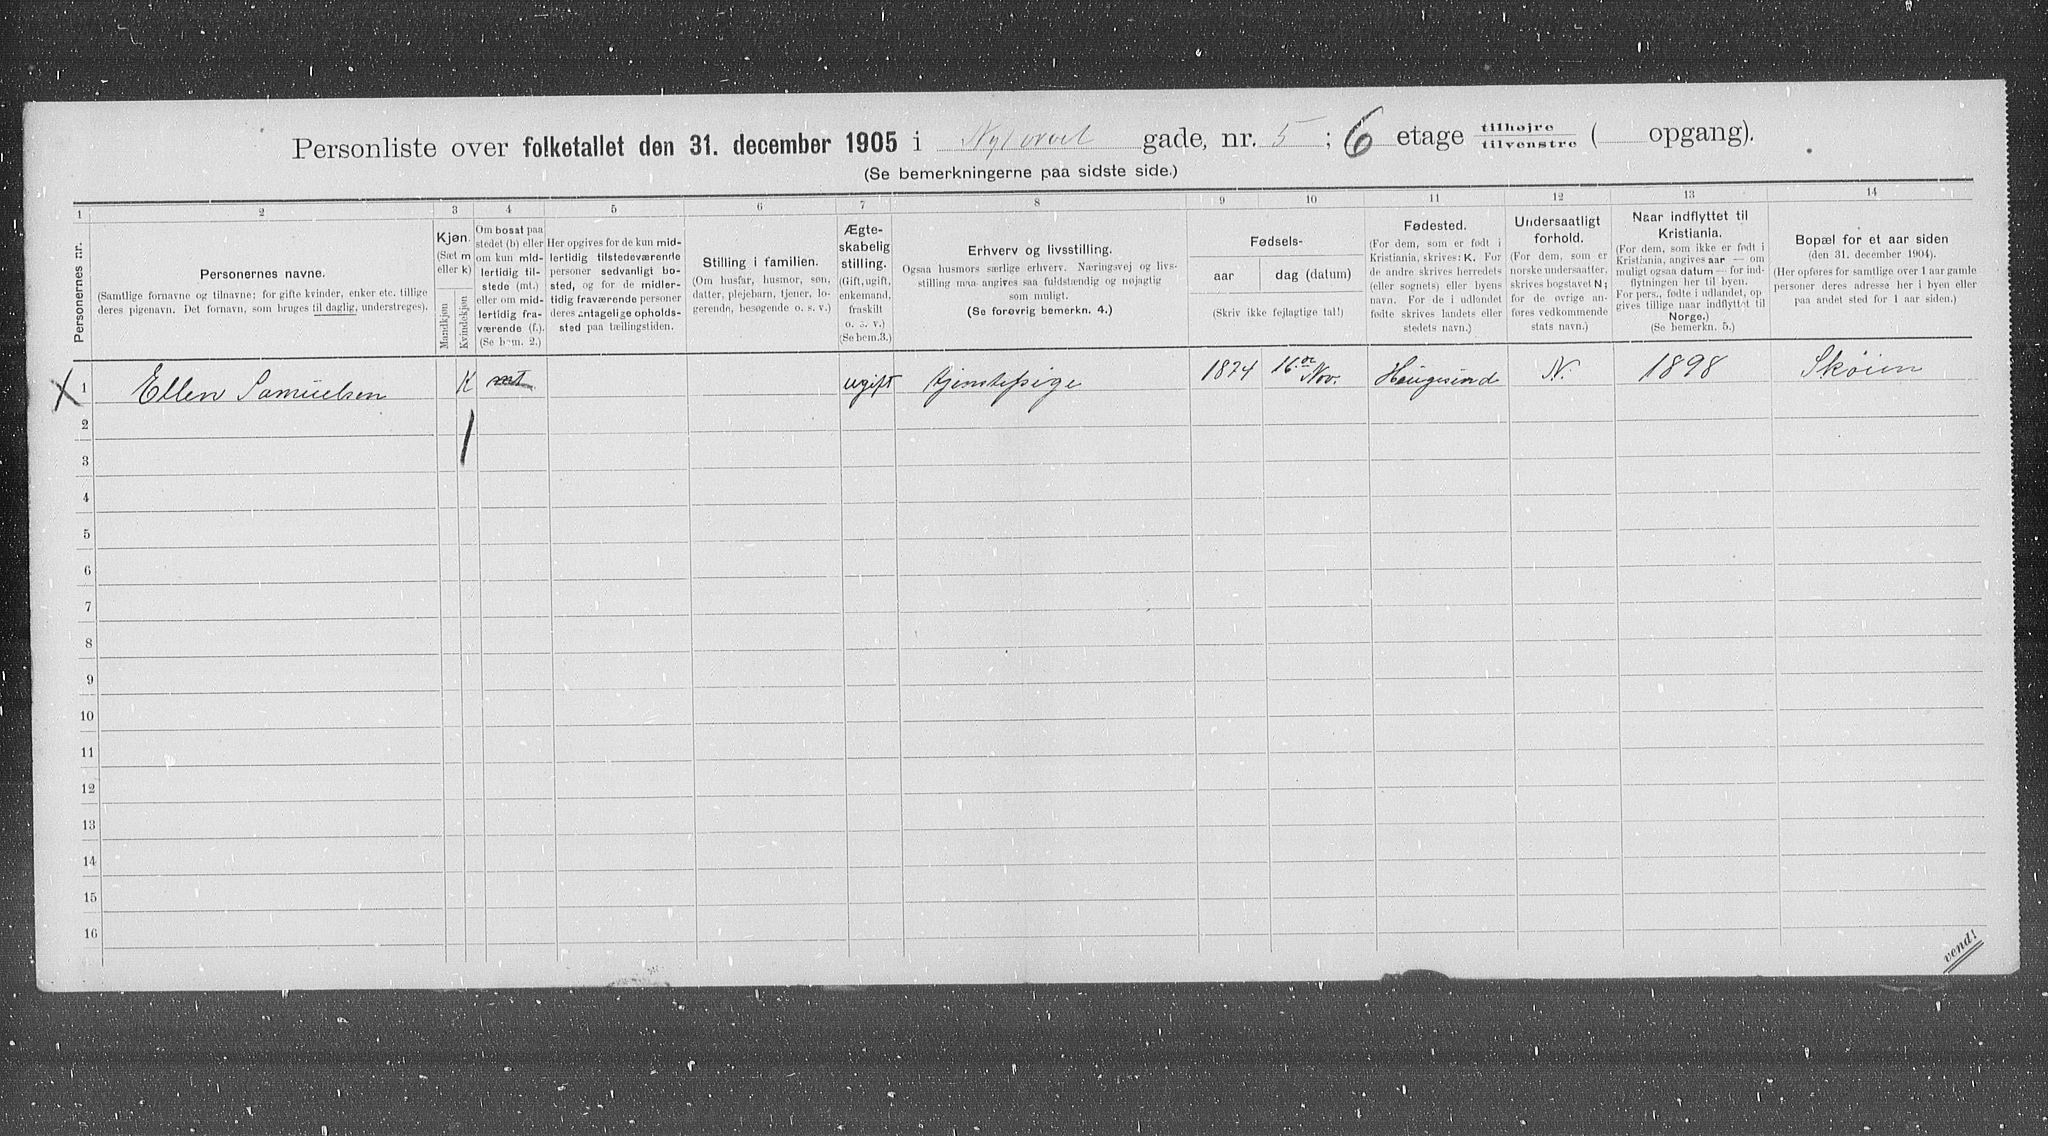 Personliste over folketallet den 31. december 1905 i Nytorvet gade, nr. 5 ; 6 etage tilhøjre / tilvenstre ( opgang).
(Se bemerkningerne paa sidste side.)
1 2 3 4 5 6 7 8 9 10 11 12 13 14
Personernes nr.
Personernes navne.
(Samtlige fornavne og tilnavne; for gifte kvinder, enker etc. tillige
deres pigenavn. Det fornavn, som bruges til daglig, understreges).
Kjøn.
(Sæt m
eller k)
Mandkjøn
Kvindekjøn
Om bosat paa
stedet (b) eller
om kun mid-
lertidig til-
stede (mt.)
eller om mid-
lertidig fra-
værende (f.).
(Se bem. 2.)
Her opgives for de kun mid-
lertidig tilstedeværende
personer sedvanligt bo-
sted, og for de midler-
tidig fraværende personer
deres antagelige opholds-
sted paa tællingstiden.
Stilling i familien.
(Om husfar, husmor, søn,
datter, plejebarn, tjener, lo-
gerende, besøgende o. s. v.)
Ægte-
skabelig
stilling.
(Gift, ugift,
enkemand,
fraskilt
o. s. v.)
(Se bem.3.)
Erhverv og livsstilling.
Ogsaa husmors særlige erhverv. Næringsvej og livs-
stilling maa angives saa fuldstændig og nøjagtig
som muligt.
(Se forøvrig bemerkn. 4.)
Fødsels-
aar
dag (datum)
(Skriv ikke fejlagtige tal!)
Fødested.
(For dem, som er født i
Kristiania, skrives: K. For
de andre skrives herredets
(eller sognets) eller byens
navn. For de i udlandet
fødte skrives landets eller
stedets navn.)
Undersaatligt
forhold.
(For dem, som er
norske undersaatter,
skrives bogstavet N;
for de øvrige an-
føres vedkommende
stats navn.)
Naar indflyttet til
Kristiania.
(For dem, som ikke er født i
Kristiania, angives aar — om
muligt ogsaa datum — for ind-
flytningen her til byen.
For pers., fødte i udlandet, op
gives tillige naar indflyttet til
Norge.)
(Se bemerkn. 5.)
Bopæl for et aar siden
(den 31. december 1904).
(Her opføres for samtlige over 1 aar gamle
personer deres adresse her i byen eller
paa andet sted for 1 aar siden.)
X 1 Ellen Samuelsen K mt ugift tjenstepige 1874 16de Nov. Haugesund N. 1898 Skøien
2
3
4
5
6
7
8
9
10
11
12
13
14
15
16
vend!